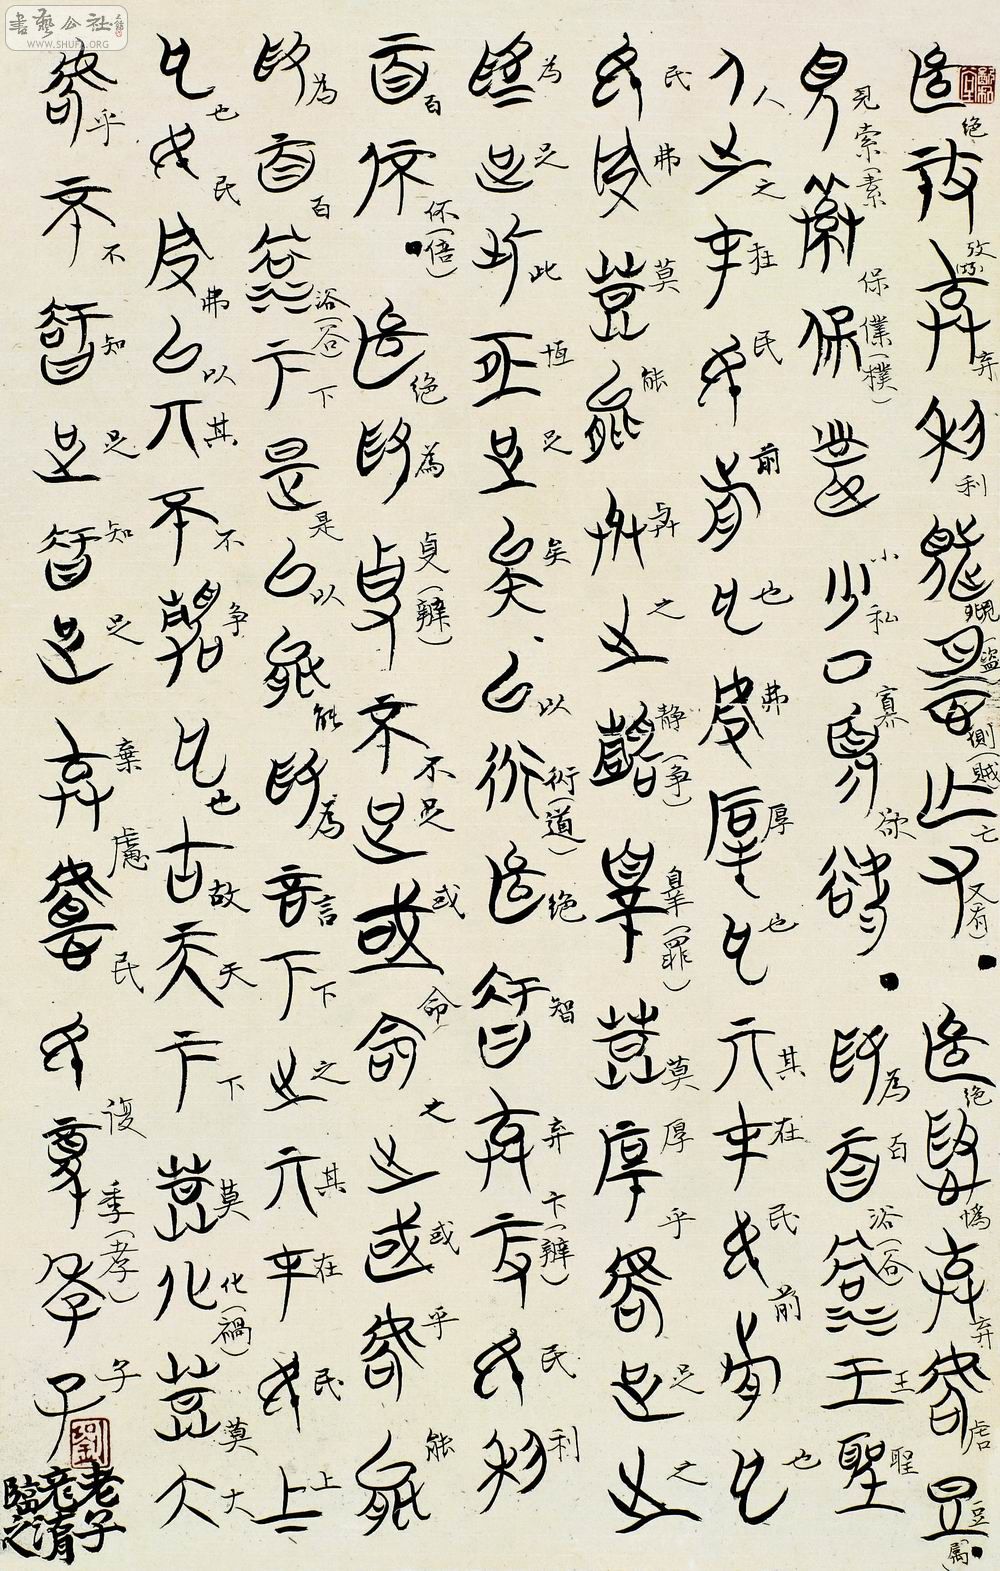 書藝公社
WWW.SHUFA.ORG
绝攷弃利覜(盗)恻(贼)亡又(有)●绝弃虘豆(属)
见索(素)保僕(樸)少私寡欲●為百浴(谷)王聖
人之在民前也弗厚也其在民前也
民弗莫能弁之静(争)辠(罪)莫厚乎足之
為足此恒足矣以衍(道)绝智弃卞(辩)民利
百伓(倍)●绝為叓(辨)不足或命之或乎能
為百浴(谷)下是以能為言下之其在民上
也民弗以其不争也故天下莫化(禍)莫大
乎不知足知足棄慮民復季(孝)子
老子
臨之